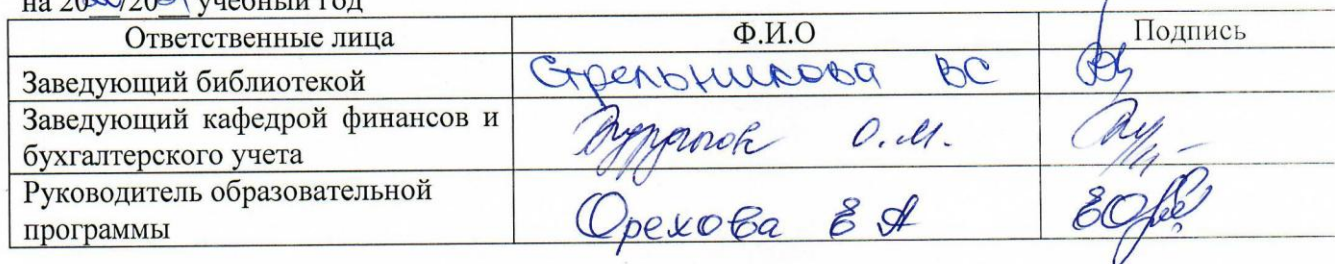 на 20 /20 учебный год
Ответственные лица Ф.И.О Подпись
Заведующий библиотекой Стрельникова ВС
Заведующий кафедрой финансов и
бухгалтерского учета О.М.
Руководитель образовательной
программы Орехова Е А